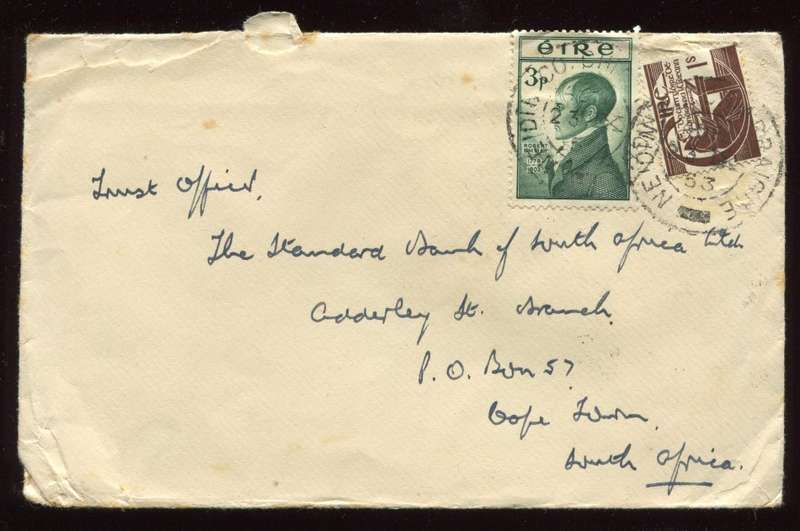 éire
3p
ROBERT
EMMET
1803
1s
53
Trust Office,
The Standard Bank of South Africa Ltd
Adderley St. Branch,
P.O. Box 57
Cape Town,
South Africa.